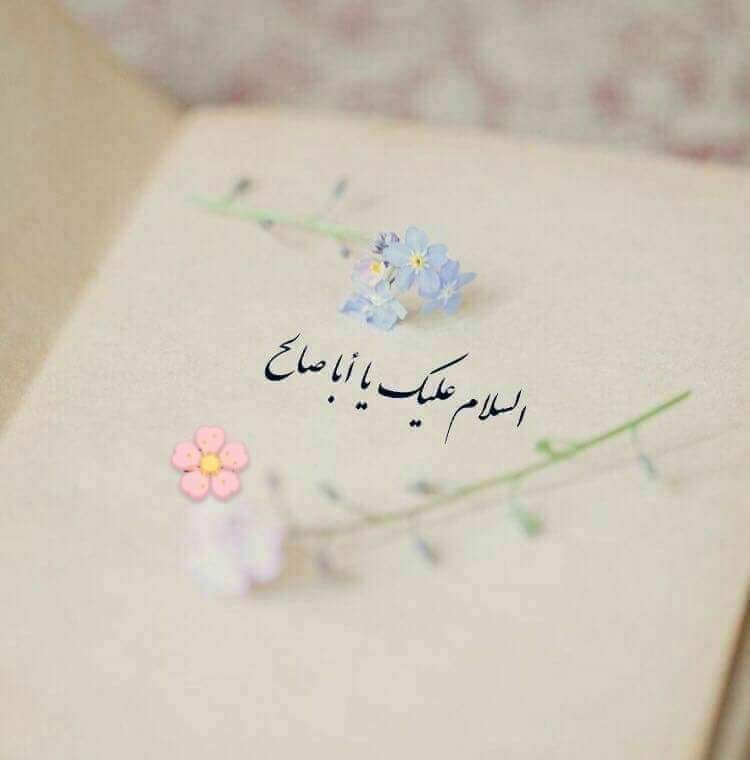 السلام عليك يا أبا صالح